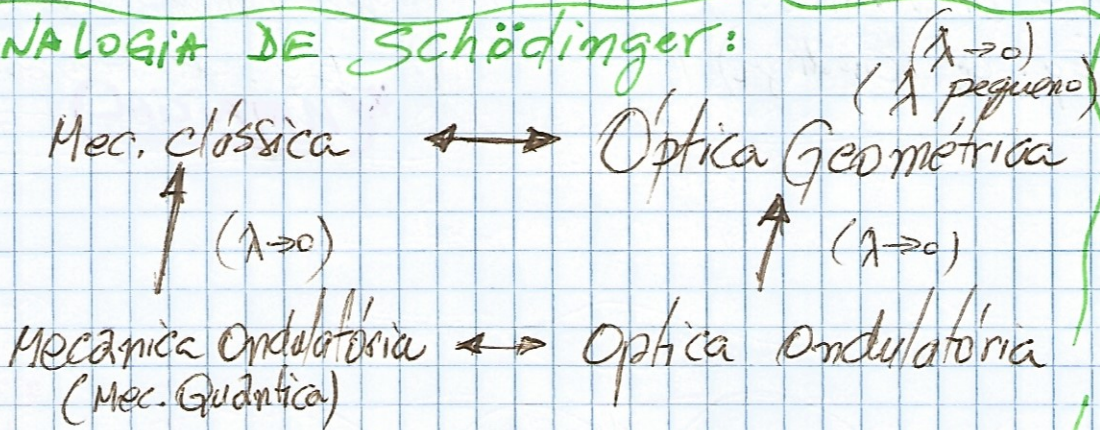 NALOGIA DE Schödinger:
(λ→0)
(λ pequeno)
Mec. clássica ↔ Óptica Geométrica
(λ→0) (λ→0)
Mecânica Ondulatória ↔ Optica Ondulatória
(Mec. Quântica)